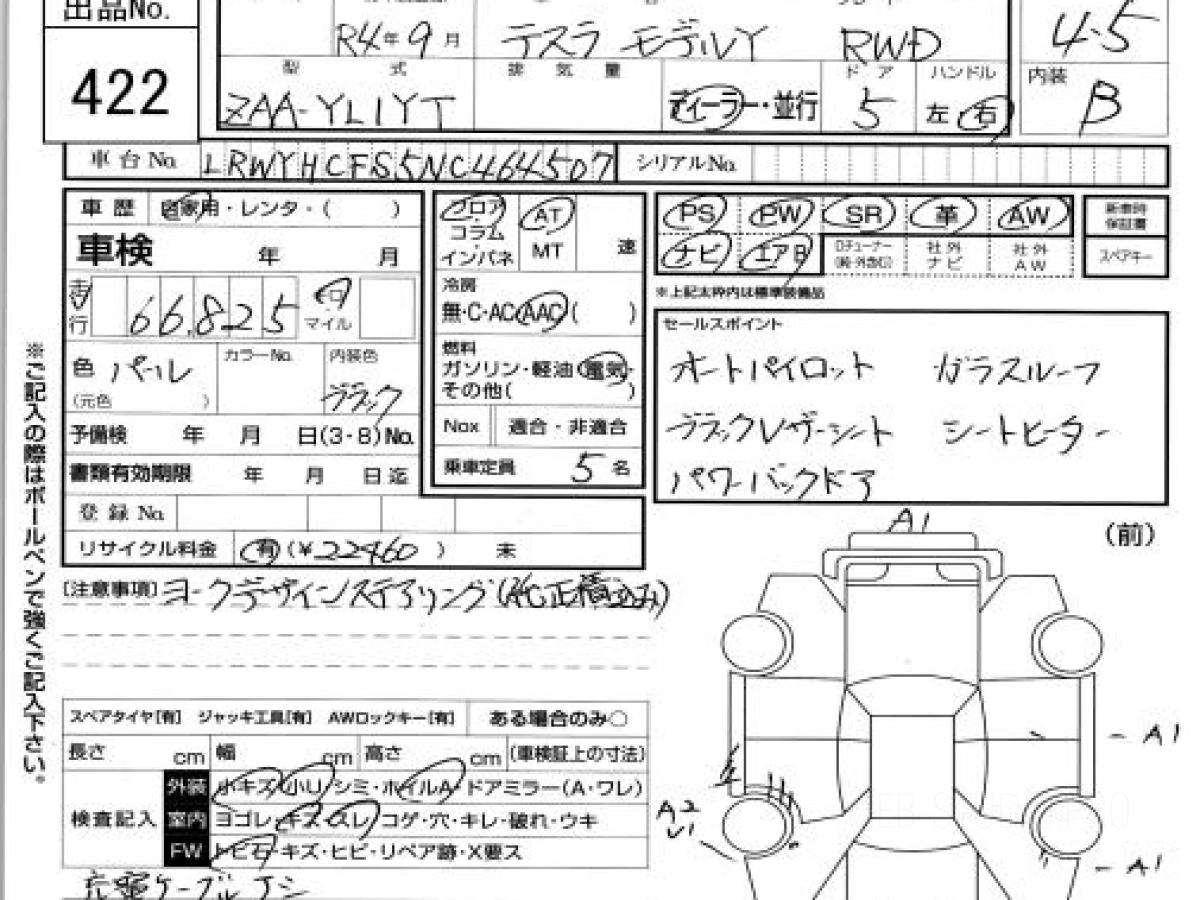 出品No.
422
R4年9月 テスラ モデルY RWD 4.5
型式 排気量 ドア ハンドル 内装
ZAA-YL1YT ディーラー・並行 5 左 右 B
車台No. LRWYHCFS5NC464507 シリアルNo.
車歴 自家用・レンタ・( )
車検 年 月
走行 66,825 キロ マイル
色 パール カラーNo. 内装色
(元色 ) ブラック
予備検 年 月 日(3・8)No.
書類有効期限 年 月 日迄
登録No.
リサイクル料金 有(¥22460) 未
フロア・コラム・インパネ
AT MT 速
冷房
無・C・AC・AAC( )
燃料
ガソリン・軽油・電気・
その他( )
Nox 適合・非適合
乗車定員 5名
PS PW SR 革 AW
ナビ エアB Dチューナー(純・外含む) 社外ナビ 社外AW
新車時保証書
スペアキー
※上記太枠内は標準装備品
セールスポイント
オートパイロット ガラスルーフ
ブラックレザーシート シートヒーター
パワーバックドア
[注意事項]ヨークデザインステアリング(純正積込み)
※ご記入の際はボールペンで強くご記入下さい。
スペアタイヤ[有] ジャッキ工具[有] AWロックキー[有] ある場合のみ○
長さ cm 幅 cm 高さ cm (車検証上の寸法)
検査記入
外装 小キズ・小リ・シミ・ホイルA・ドアミラー(A・ワレ)
室内 ヨゴレ・キズ・スレ・コゲ・穴・キレ・破れ・ウキ
FW トビ石・キズ・ヒビ・リペア跡・X要ス
充電ケーブルナシ
(前)
A1
A1
A2
U1
A1